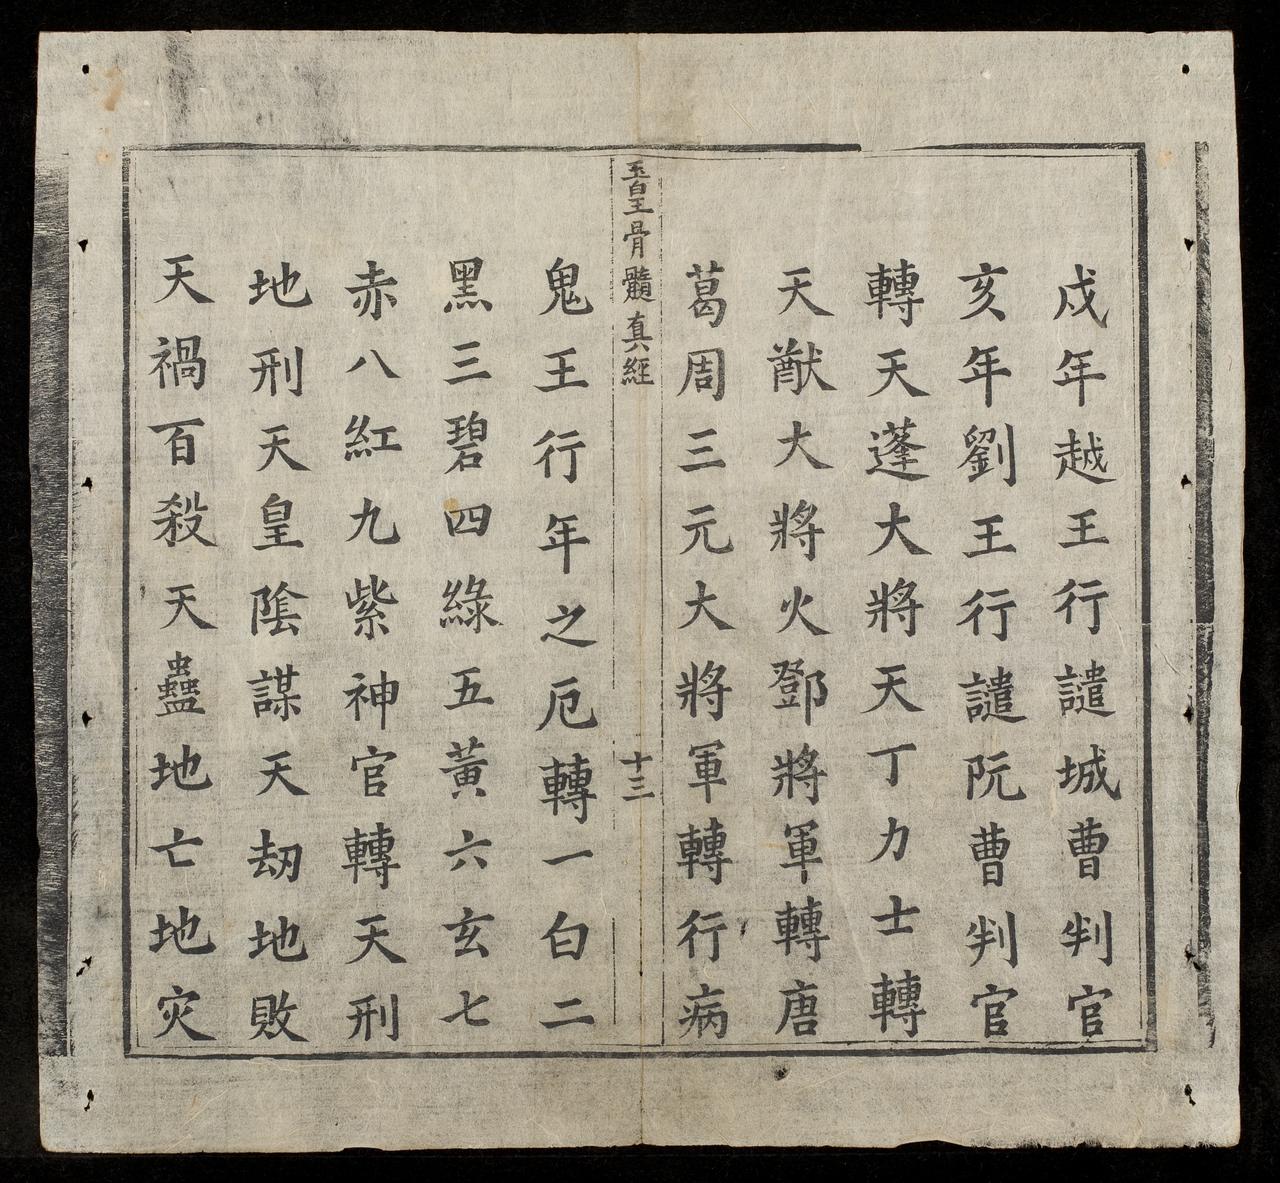 戍年越王行譴城曹判官
亥年劉王行譴阮曹判官
轉天蓬大將天丁力士轉
天猷大將火鄧將軍轉唐
葛周三元大將軍轉行病
玉皇骨髓真經
十三
鬼王行年之厄轉一白二
黑三碧四綠五黃六玄七
赤八紅九紫神官轉天刑
地刑天皇陰謀天劫地敗
天禍百殺天蠱地亡地灾